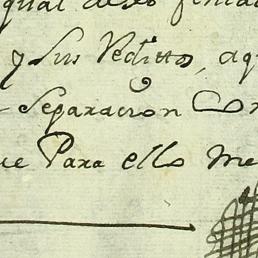 qual deso
y sus Veditos, aq
Separacion Con
ue Para ello me